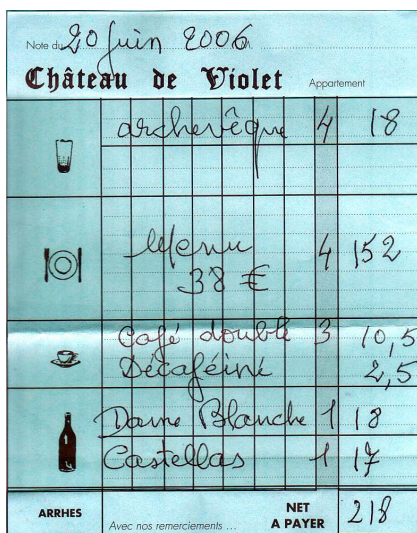 Note du 20 juin 2006 M
Château de Violet Appartement
archevêque 4 18
Menu 4 152
38 €
Café double 3 10,5
Décaféiné 2,5
Dame Blanche 1 18
Castellas 1 17
ARRHES Avec nos remerciements ... NET A PAYER 218